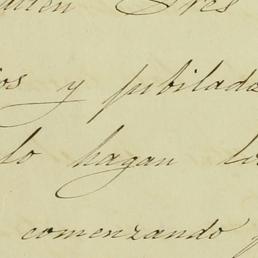 Tres
os y jubilada
lo hagan lo
comenzando